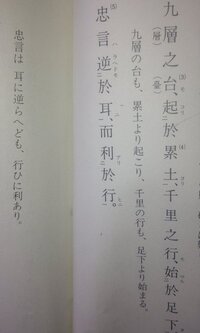 九層之台、起於累土、千里之行、始於足下
九層の台も、累土より起こり、千里の行も、足下より始まる。
(5)忠言逆於耳、而利於行。
忠言は 耳に逆らへども、行ひに利あり。